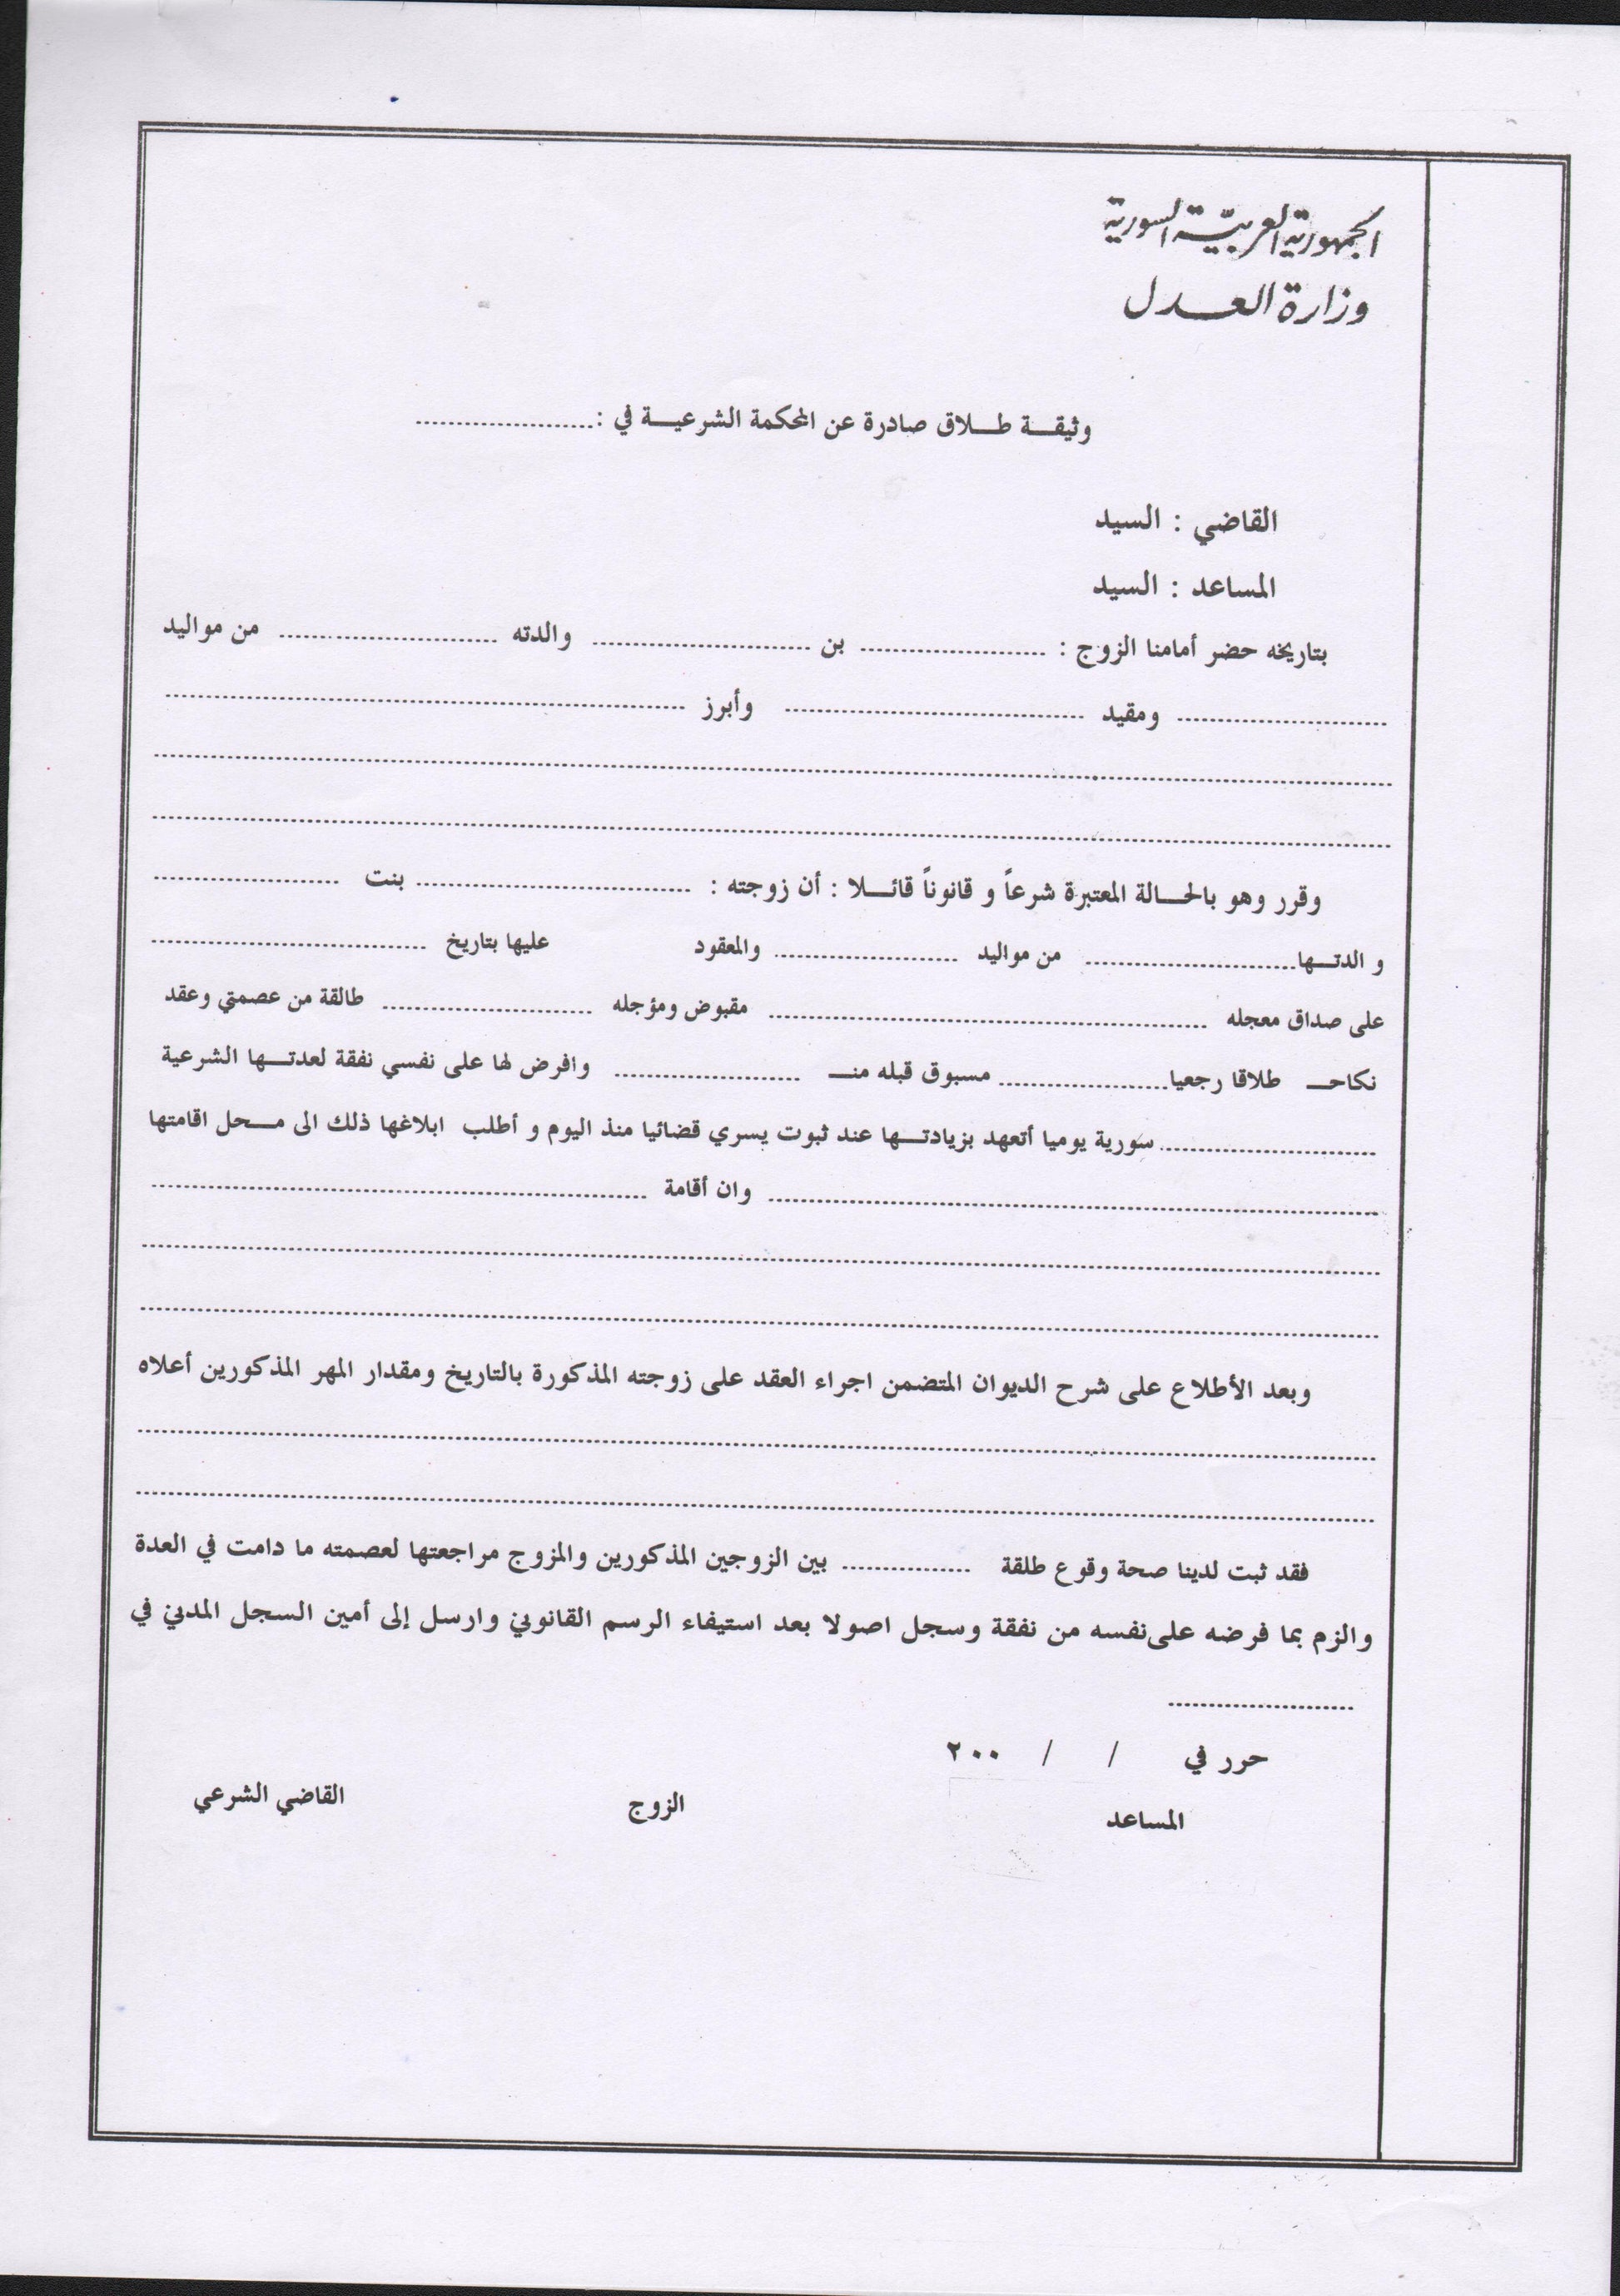 الجمهورية العربيّة السورية
وزارة العـدل
وثيقـة طـلاق صادرة عن المحكمة الشرعيـة في : ....................
القاضي : السيد
المساعد : السيد
بتاريخه حضر أمامنا الزوج : .................... بن .................... والدته .................... من مواليد
.................... ومقيد .................... وأبرز ....................
....................
....................
وقرر وهو بالحـالة المعتبرة شرعاً و قانوناً قائـلا : أن زوجته : .................... بنت ....................
و الدتـها.................... من مواليد .................... والمعقود عليها بتاريخ ....................
على صداق معجله .................... مقبوض ومؤجله .................... طالقة من عصمتي وعقد
نكاحـ طلاقا رجعيا.................... مسبوق قبله منـ .................... وافرض لها على نفسي نفقة لعدتـها الشرعية
....................سورية يوميا أتعهد بزيادتـها عند ثبوت يسري قضائيا منذ اليوم و أطلب ابلاغها ذلك الى مـحل اقامتها
.................... وان أقامة ....................
....................
....................
وبعد الأطلاع على شرح الديوان المتضمن اجراء العقد على زوجته المذكورة بالتاريخ ومقدار المهر المذكورين أعلاه
....................
....................
فقد ثبت لدينا صحة وقوع طلقة ................ بين الزوجين المذكورين والمزوج مراجعتها لعصمته ما دامت في العدة
والزم بما فرضه على نفسه من نفقة وسجل اصولا بعد استيفاء الرسم القانوني وارسل إلى أمين السجل المدني في
....................
حرر في / / ٢٠٠
المساعد الزوج القاضي الشرعي